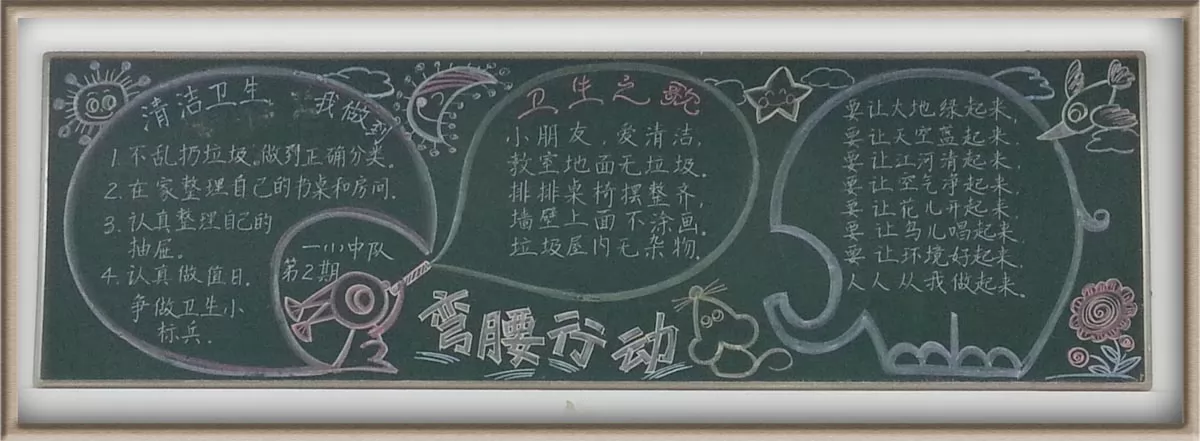 清洁卫生 我做到
1. 不乱扔垃圾，做到正确分类。
2. 在家整理自己的书桌和房间.
3. 认真整理自己的
抽屉。
4. 认真做值日.
争做卫生小
标兵.
一(1)中队
第2期
卫生之歌
小朋友，爱清洁，
教室地面无垃圾.
排排桌椅摆整齐，
墙壁上面不涂画.
垃圾屋内无杂物.
弯腰行动
要让大地绿起来，
要让天空蓝起来，
要让江河清起来，
要让空气净起来，
要让花儿开起来，
要让鸟儿唱起来，
要让环境好起来，
人人从我做起来.